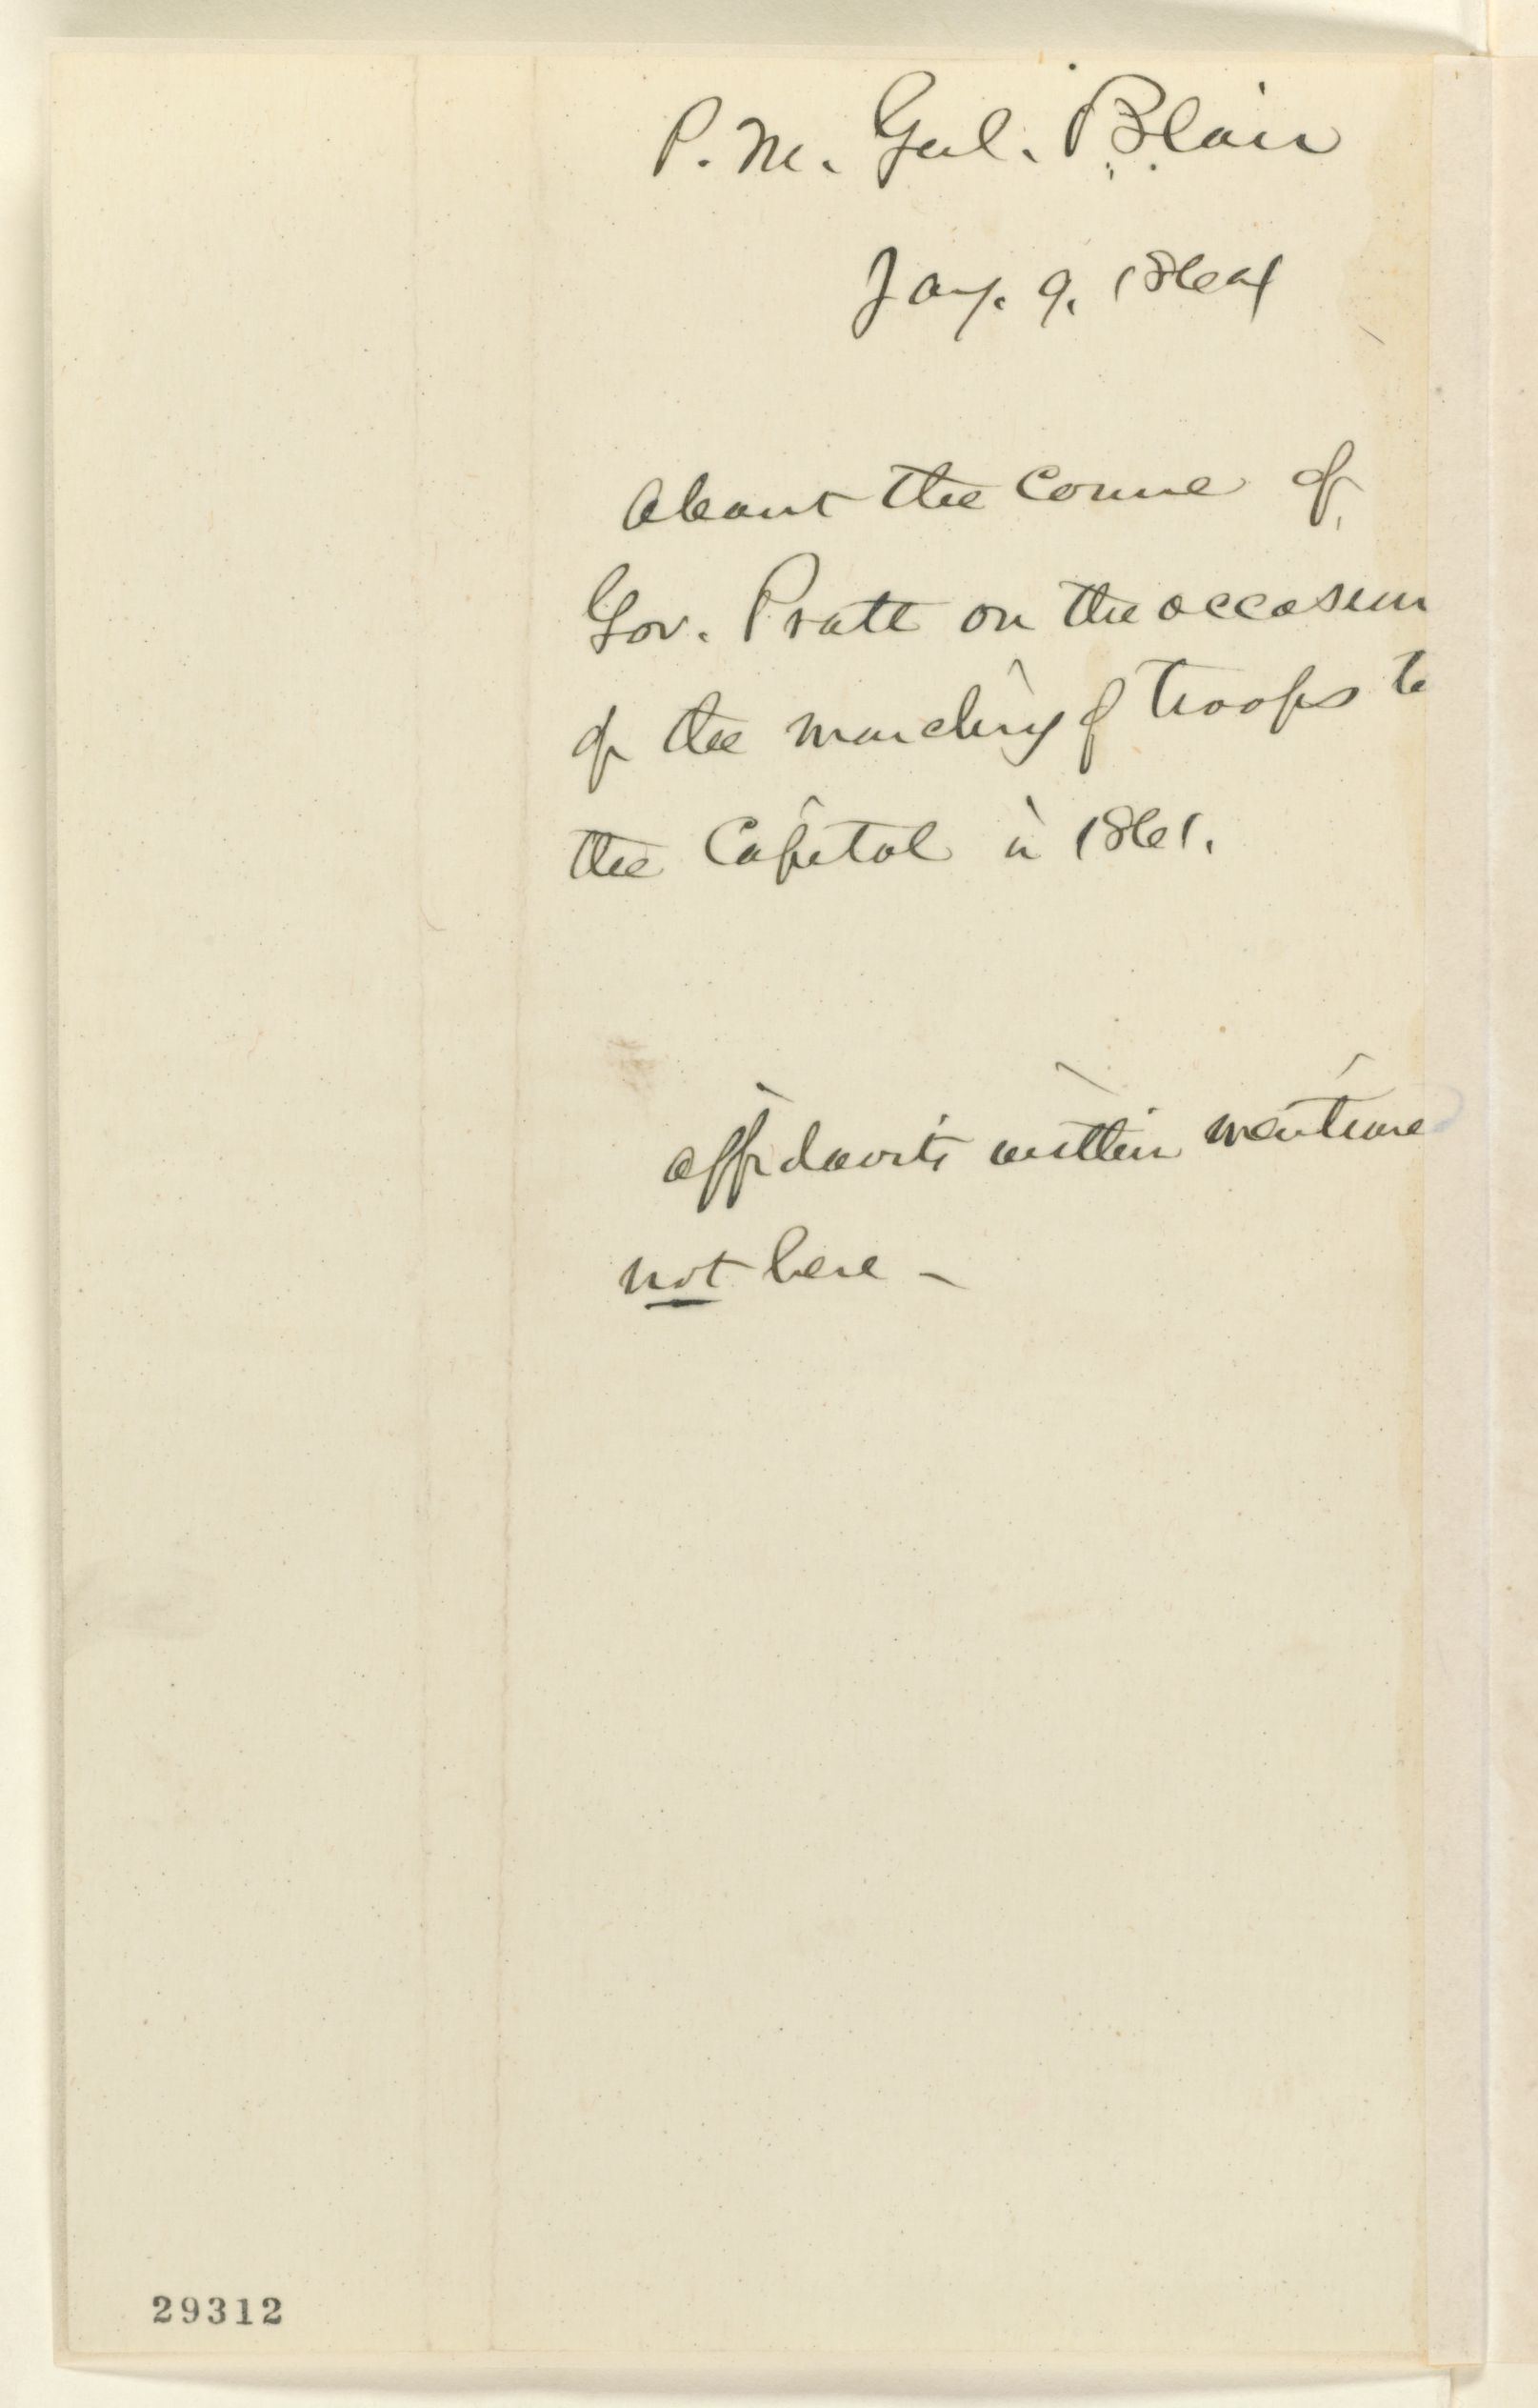 P. M. Genl. Blair
Jany. 9. 1864
About the Course of
Gov. Pratt on the occasion
of the marching of troops to
the Capitol in 1861.
affidavits within mentioned
not here –
29312